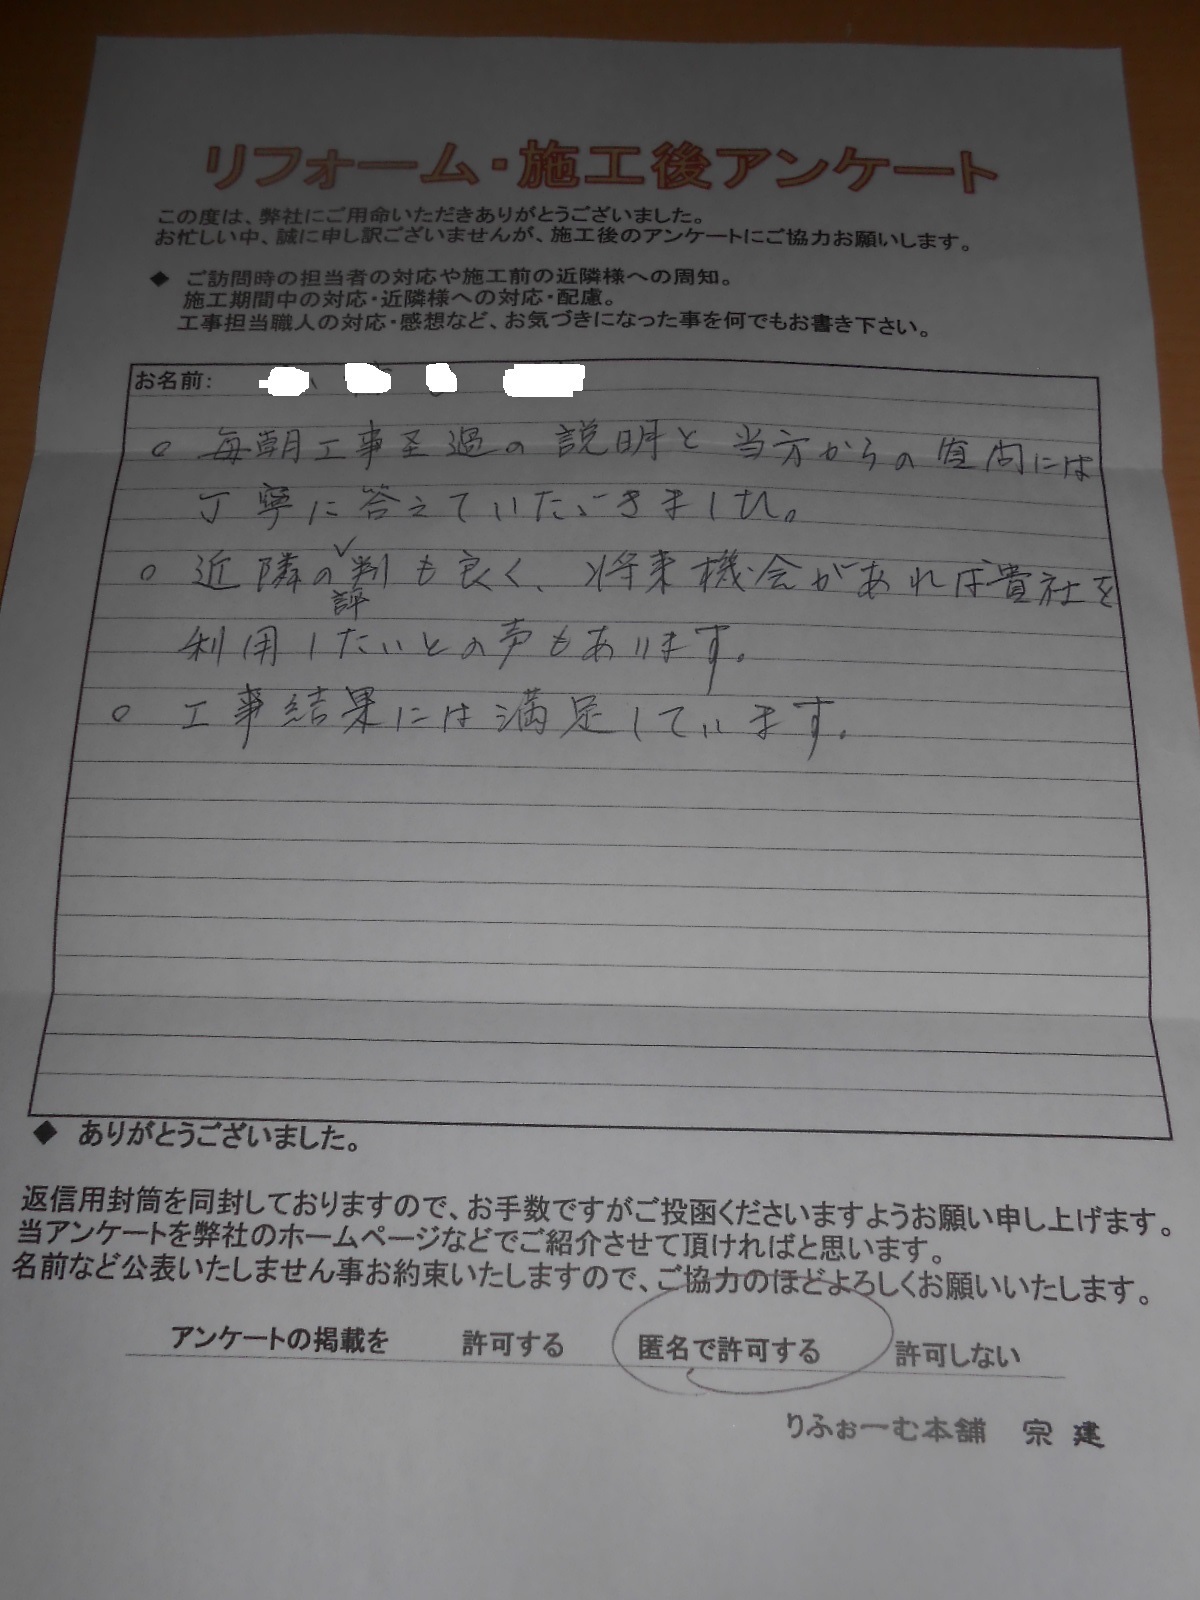 リフォーム・施工後アンケート
この度は、弊社にご用命いただきありがとうございました。
お忙しい中、誠に申し訳ございませんが、施工後のアンケートにご協力お願いします。
◆ ご訪問時の担当者の対応や施工前の近隣様への周知。
施工期間中の対応・近隣様への対応・配慮。
工事担当職人の対応・感想など、お気づきになった事を何でもお書き下さい。
お名前:
○ 毎朝工事の説明と当方からの質問には
丁寧に答えていただきました。
○ 近隣の評判も良く、将来機会があれば貴社を
利用したいとの声もあります。
○ 工事結果には満足しています。
◆ ありがとうございました。
返信用封筒を同封しておりますので、お手数ですがご投函くださいますようお願い申し上げます。
当アンケートを弊社のホームページなどでご紹介させて頂ければと思います。
名前など公表いたしません事お約束いたしますので、ご協力のほどよろしくお願いいたします。
アンケートの掲載を 許可する 匿名で許可する 許可しない
りふぉーむ本舗 宗建